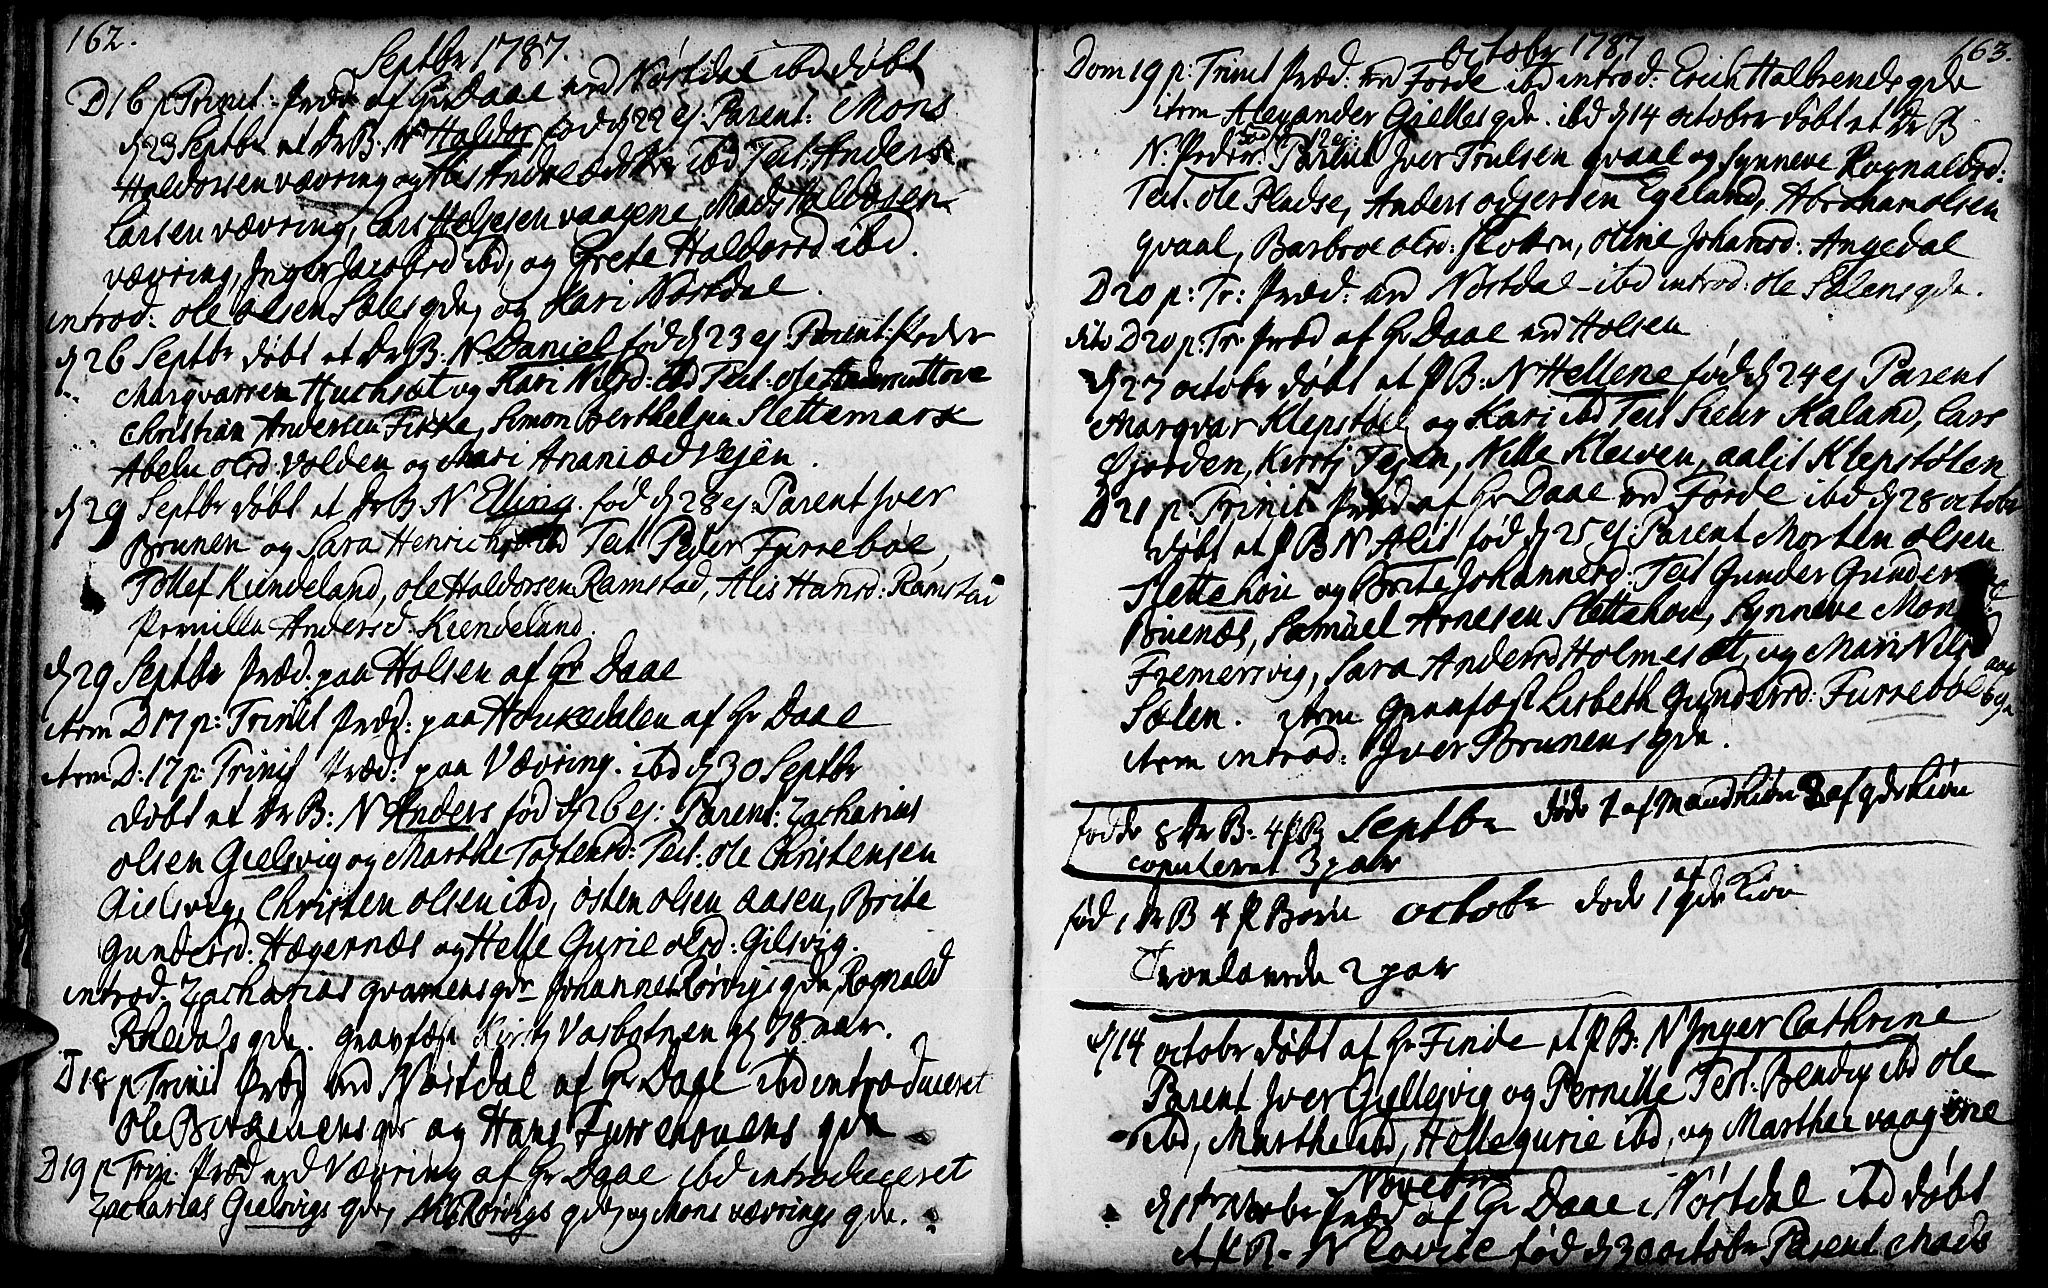 162.
Septbr 1787.
D 16 p Trinit: Præd: af Hr Daae ved Nöstdal ibd döbt
d 23 Septbr et Dr B: N Haldor fød d 22 ej: Parent: Mons
Haldorsen vævring og Anders
Larsen vævring, Lars Helgesen vaagene, Mads Haldorsen
vævring, Inger Jacobsd ibd, og Grete Haldorsd ibd.
introd: ole olsen Sæles qde, og Kari Nöstdal.
d 26 Septbr døbt et Dr B: N. Daniel fød d 23 ej Parent: Peder
Marqvarsen Huchsæt og Kari Nilsd: ibd Test: ole
Christian Andersen Fixke, Simon Berthelsen Slettemark
Abelu olsd: volden og Mari Ananiæd vejen.
d 29 Septbr døbt et Dr B N Elling. fød d 28 ej: Parent Jver
Brunen og Sara Henrichsd ibd Test Peder Furreböe,
Tollef Kindeland, ole Haldorsen Ramstad, Alis Hansd: Ramstad
Pernille Andersd Kindeland.
d 29 Septbr Præd: paa Holsen af Hr Daae
item D 17 p: Trinit Præd: paa Houkedalen af Hr Daae
item D: 17 p: Trinit Præd: paa Vævring. ibd d 30 Septbr
döbt et Dr B: N Anders fød d 26 ej: Parent: Zacharias
olsen Gielsvig og Marthe Tostensd: Test: ole Christensen
Gielsvig, Christen olsen ibd, östen olsen aasen, Brite
Gundersd: Hægernæs og Helle Gurie olsd: Gilsvig.
introd: Zacharias qvamens qde Johannes Rörvigs qde, Rognald
qde. gravfæst Kirstj Vasbotnen 78 aar.
D 18 p Trinit Præd ved Nöstdal af Hr Daae ibd introduceret
ole qde og Hans qde
D 19 p Trin: Præd ved Vævring af Hr Daae ibd introduceret
Zacharias Gielsvigs qde, Rörvigs qde, og Mons vævrings qde.
October 1787
163.
Dom 19 p: Trinit Præd: ved Förde ibd introd: Erich Halbrends qde
item Alexander Gielles qde. ibd d 14 october döbt et Dr B
N. Peder. Parent Jver Trulsen qvaal og Synneve Rognaldsd:
Test. ole Pladse, Anders odgersen Egeland, Abraham olsen
qvaal, Barbroe olsd: Flotten, oline Johansd: Angedal
D 20 p: Tr: Præd: ved Nöstdal ibd introd: ole Sælens qde.
dito D 20 p: Tr: Præd af Hr Daae ved Holsen
d 27 octobr döbt et P B: N Hellene fød d 24 ej Parent
Marqvar Klepstöel og Kari ibd Test Siur Kaland, Lars
Fjorden, Kirstj Tegen, Nille Kleiven, aalis Klepstölen
D 21 p: Trinit Præd af Hr Daae ved Förde ibd d 28 octobr
döbt et P B N Alis fød d 25 ej: Parent Morten olsen
Slettehöu og Brite Johannesd: Test Gunder
Bruenæs, Samuel Arnesen Slettehou, Synneve
Fremersvig, Sara Andersd Holmesæt, og Mari Nilsd
Sælen. item gravfæst Lisbeth Gundersd: Furreböe
item introd: Jver Brunens qde.
födde 8 Dr B: 4 P B Septbr döde 1 af Mandkiön 2 af qdekiön
copuleret 3 par
fød 1 Dr B 4 P Börn octobr dode 1 af qde kiön
Tronlovede 2 par
d 14 octobr döbt af Hr Finde et P B: N Jnger Cathrine
Parent Jver Gyllesvig og Pernille Test: Bendix ibd ole
ibd, Marthe ibd, Helle gurie ibd, og Marthe vaagene
Novebr
d 1ste Novbr Præd af Hr Daae i Nöstdal ibd döbt
et P B: N Lovise fød d 30 octobr Parent Mads